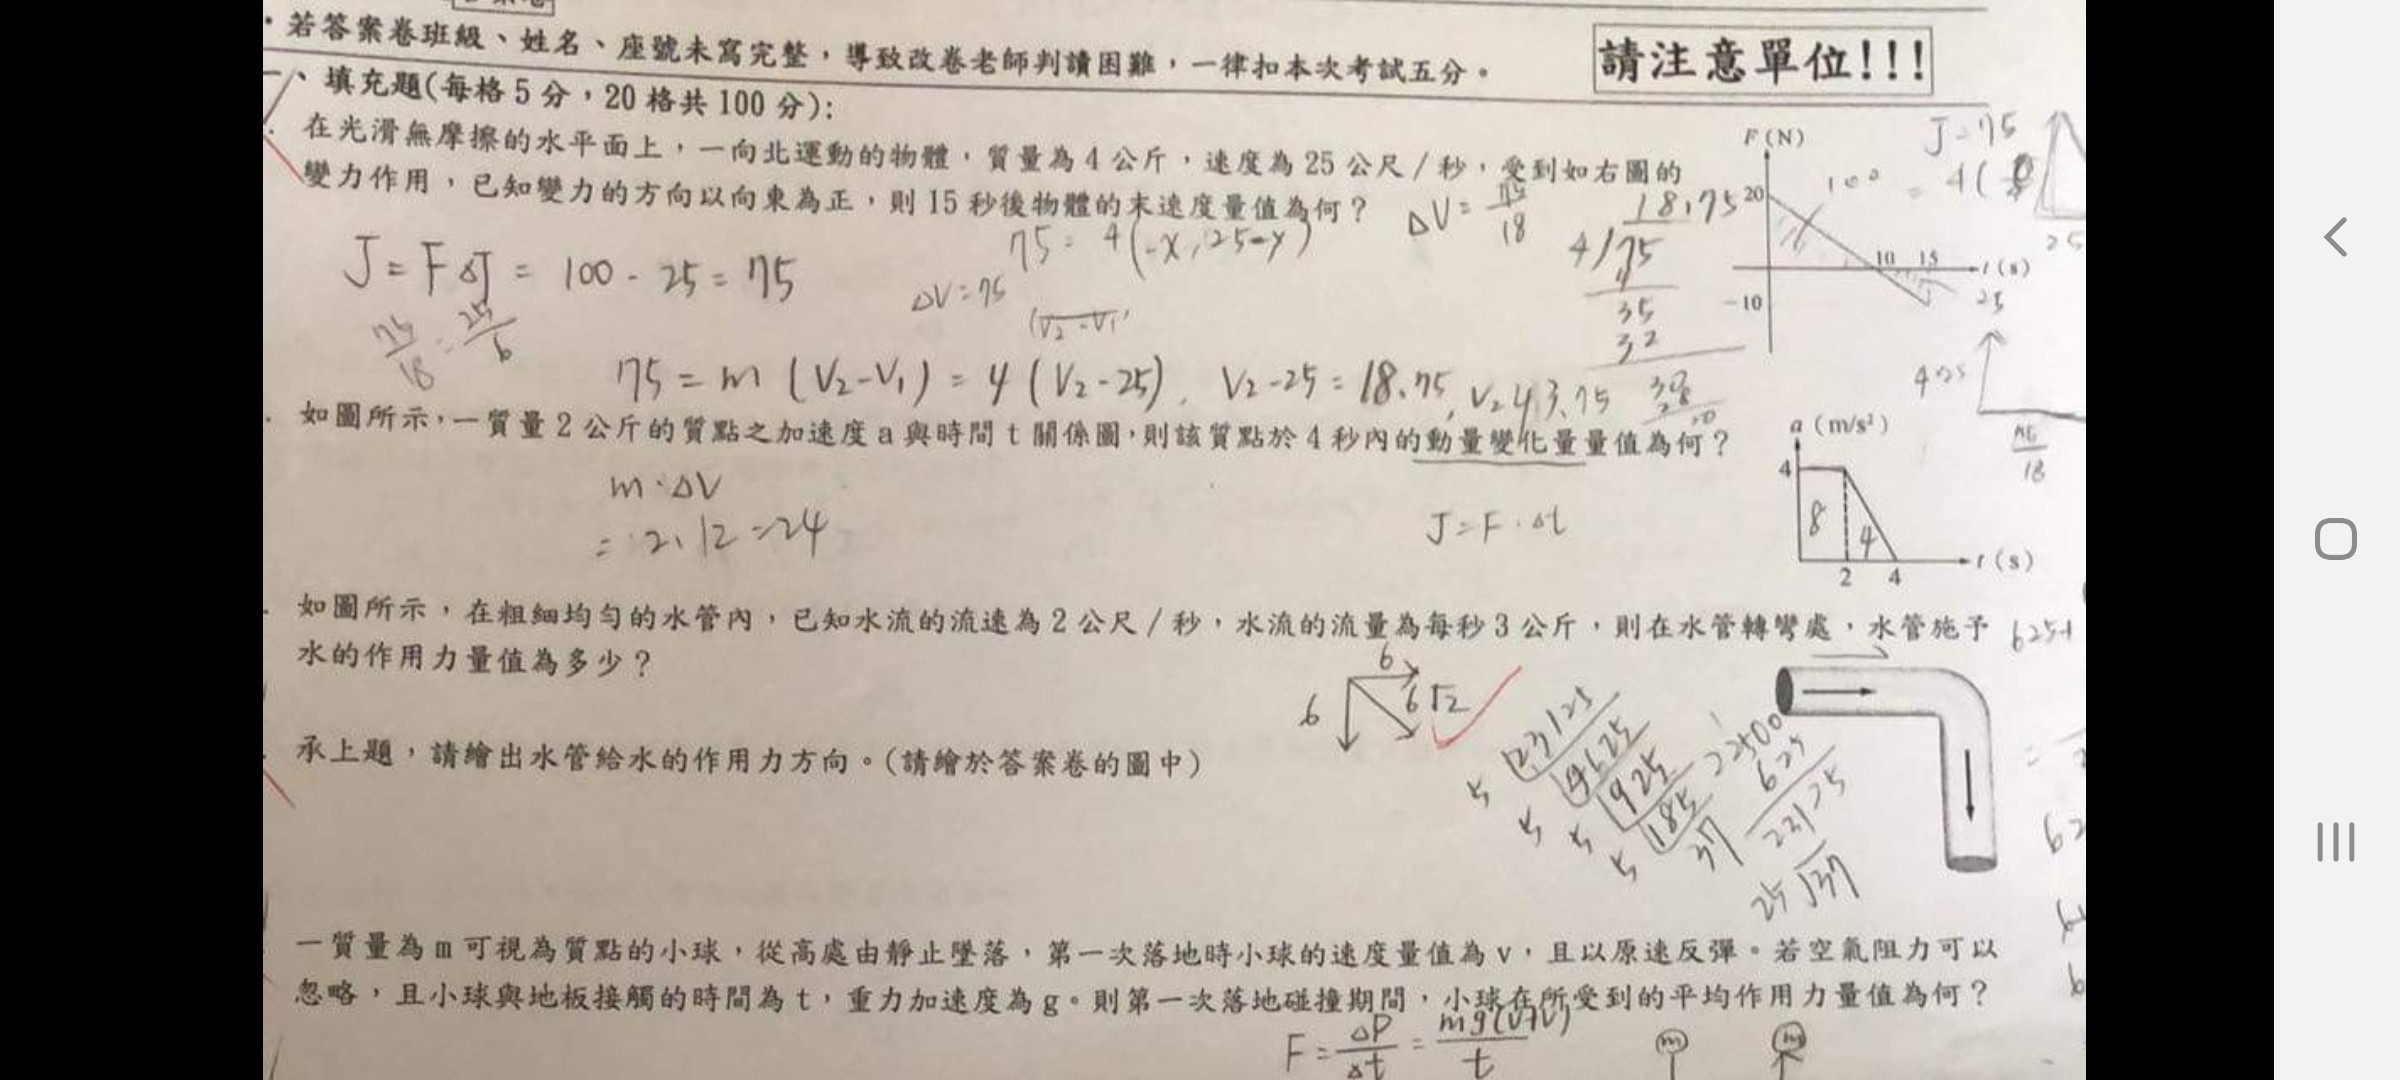 若答案卷班級、姓名、座號未寫完整，導致改卷老師判讀困難，一律扣本次考試五分。
請注意單位!!!
一、填充題(每格5分，20格共100分):
在光滑無摩擦的水平面上，一向北運動的物體，質量為4公斤，速度為25公尺/秒，受到如右圖的
變力作用，已知變力的方向以向東為正，則15秒後物體的末速度量值為何？
F(N)
20
10 15
t(s)
-10
J=75
100
25
ΔV=75/18
18.75
4/75
4
35
32
30
28
20
75=4(-x,25-y)
J=FΔJ=100-25=75
ΔV=75
75/18=25/6
75=m(V2-V1)=4(V2-25), V2-25=18.75, V=43.75
如圖所示，一質量2公斤的質點之加速度a與時間t關係圖，則該質點於4秒內的動量變化量量值為何？
a(m/s²)
4
8
4
2 4
t(s)
m·ΔV
=2·12=24
J=F·Δt
如圖所示，在粗細均勻的水管內，已知水流的流速為2公尺/秒，水流的流量為每秒3公斤，則在水管轉彎處，水管施予
水的作用力量值為多少？
6
6
6√2
承上題，請繪出水管給水的作用力方向。(請繪於答案卷的圖中)
5 23125
5 4625
5 925
5 185
37
22500
625
23125
25√37
一質量為m可視為質點的小球，從高處由靜止墜落，第一次落地時小球的速度量值為v，且以原速反彈。若空氣阻力可以
忽略，且小球與地板接觸的時間為t，重力加速度為g。則第一次落地碰撞期間，小球在所受到的平均作用力量值為何？
F=ΔP/Δt=mg(V+V)/t
m
m